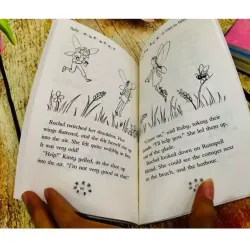 Rachel twitched her shoulders. Her
wings fluttered, and she felt herself
into the air. She felt quite wobbly at first.
It was very odd!
"Help!" Kirsty yelled, as she shot up
into the air. "I'm not very good at this!"
said Ruby, taking their
"I'll help you." She led them up,
out of the glade.
Rachel looked down on Rainspell
She could see the cottages next
to the beach, and the harbour.